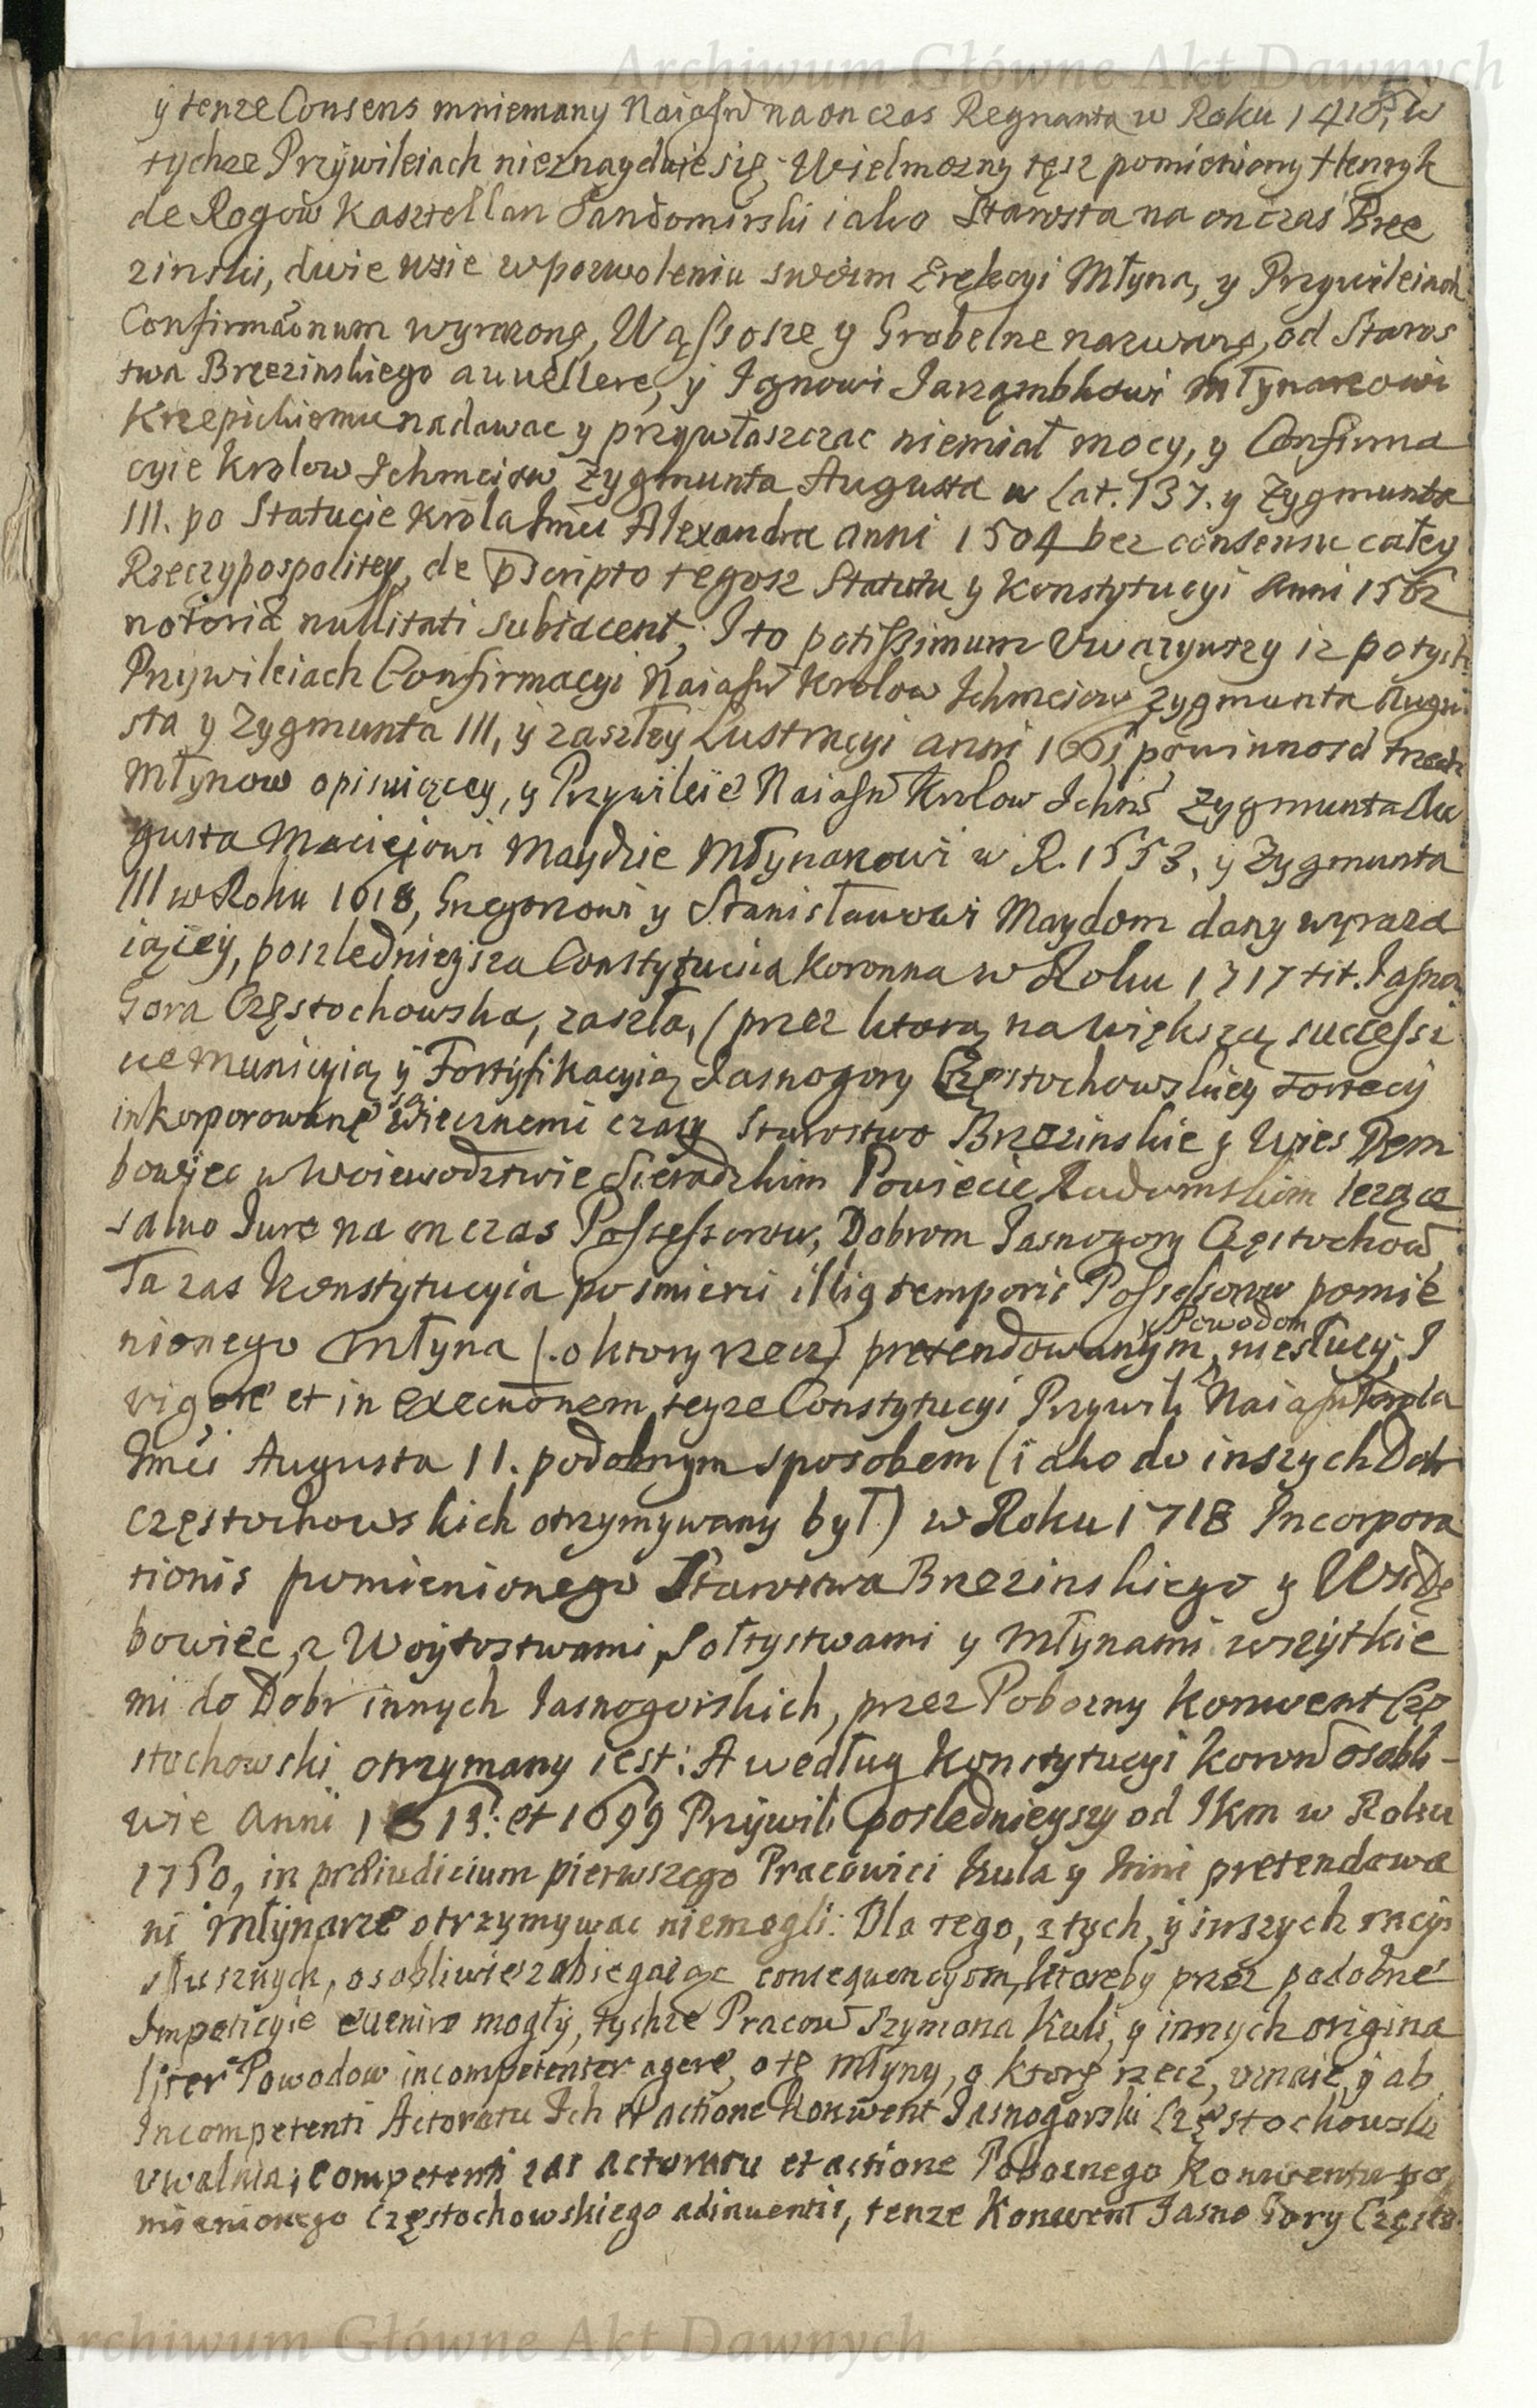 Archiwum Główne Akt Dawnych
y tenze Consens mniemany Naiasn̄ na on czas Regnanta w Roku 1418, w
tychze Przywileiach nieznayduie się, Wielmozny tęsz pomieniony Henryk
de Rogow Kasztellan Sandomirski iako Starosta na on czas Brze
zinski, dwie wsie w pozwoleniu swoim Erekcyi Młyna, y Przywileiach
Confirmāonum wyrazone, Wąssosze y Grobelne nazwane, od Staros
twa Brzezinskiego auuellere, y Janowi Jarząmbkowi Młynarzowi
Krzepickiemu nadawac y przywłaszczac niemiał mocy, y Confirma
cyie Krolow Ichmciow Zygmunta Augusta w Lat. 137. y Zygmunta
III. po Statucie Krola Jmci Alexandra anni 1504 bez consensu całey
Rzeczypospolitey, de pscripto tegosz Statutu y Konstytucyi anni 1562
notoria nullitati subiacent, I to potissimum Uwazywszy iz po tych
Przywileiach Confirmacyi Naiasn̄ Krolow Ichmciow Zygmunta Augu
sta y Zygmunta III, y zaszłey Lustracyi anni 1661 powinnosc trzech
Młynow opisuiącey, y Przywileie Naiasn̄ Krolow Ichm̄ Zygmunta Au
gusta Maciejowi Maydzie Młynarzowi w R. 1553, y Zygmunta
III w Roku 1618, Grzegorzowi y Stanisławowi Maydom dany wyraza
iącey, poszlednieysza Constytucia Koronna w Roku 1717 tit. Jasna
Gora Częstochowska, zaszła, (przez ktorą na większą successi
ue Municyią y Fortyfikacyią Jasnogory Częstochowskiey Fortecy
inkorporowane są wiecznemi czasy Starostwo Brzezinskie y Wies Dem
bowiec w Woiewodztwie Sieradzkim Powiecie Radomskim lezące
salvo Jure na on czas Possessorow, Dobrom Jasnogory Częstochow
Ta zas Konstytucyia po smierci illig temporis Possessorow pomie
nionego Młyna (o ktory rzecz) pretendowanym Powodom niesłuzy, I
vigore et in executionem teyze Constytucyi Przywili Naiasn̄ Krola
Jmci Augusta II. podobnym sposobem (iako do inszych Dobr
częstochowskich otrzymywany był) w Roku 1718 Incorpora
tionis pomienionego Starostwa Brzezinskiego y Wsi Dę
bowiec, z Woytostwami, Sołtystwami y Młynami wszytkie
mi do Dobr innych Jasnogorskich, przez Pobozny Konwent Czę
stochowski otrzymany iest: A według Konstytucyi Koron̄ osobli-
wie anni 1613. et 1699 Przywili poslednieyszy od JKm w Roku
1750, in præiudicium pierwszego Pracowici Kula y inni pretendowa
ni Młynarze otrzymywac niemogli: Dla tego, z tych, y inszych racyi
słusznych, osobliwie zabiegaiąc consequencyom, ktoreby przez podobne
Impeticyie euenire mogły, tychze Pracow̄ Szymona Kuli, y innych origina
liter Powodow incompetenter agere, o te Młyny, o ktore rzecz, uznaie, y ab
Incompetenti Actoratu Ich et actione Konwent Jasnogorski Częstochowski
uwalnia; competenti zas actoratu et actione Poboznego Konwentu po
mienionego Częstochowskiego adinuentis, tenze Konwent Jasno Gory Często
Archiwum Główne Akt Dawnych